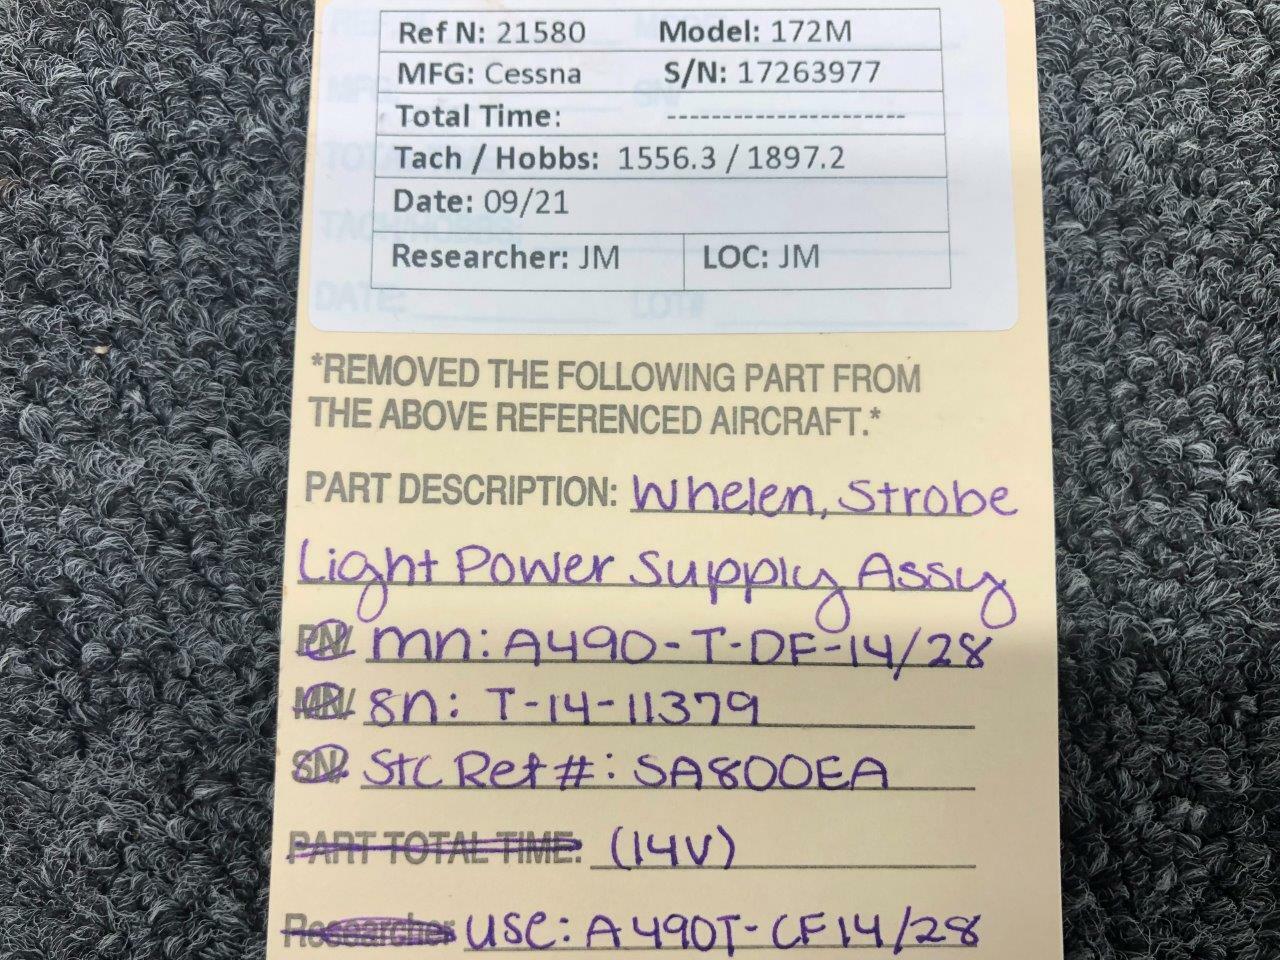 Ref N: 21580 Model: 172M
MFG: Cessna S/N: 17263977
Total Time: ---------------------
Tach / Hobbs: 1556.3 / 1897.2
Date: 09/21
Researcher: JM LOC: JM
DATE: LOT#
*REMOVED THE FOLLOWING PART FROM
THE ABOVE REFERENCED AIRCRAFT.*
PART DESCRIPTION: Whelen, Strobe
Light Power Supply Assy
PN/ mn: A490-T-DF-14/28
MN/ sn: T-14-11379
SN/ Stc Ref #: SA800EA
PART TOTAL TIME: (14V)
Researcher use: A490T-CF14/28